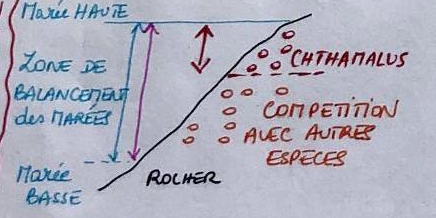 Marée HAUTE
ZONE DE
BALANCEMENT
des MARÉES
Marée
BASSE
ROCHER
CHTHAMALUS
COMPETITION
AVEC AUTRES
ESPECES